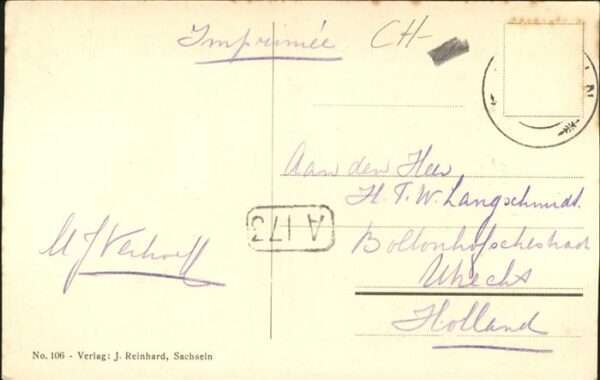 Imprimée CH-
Aan den Heer
H. T. W. Langschmidt.
Utrecht
Holland
A 173
No. 106 - Verlag: J. Reinhard, Sachseln